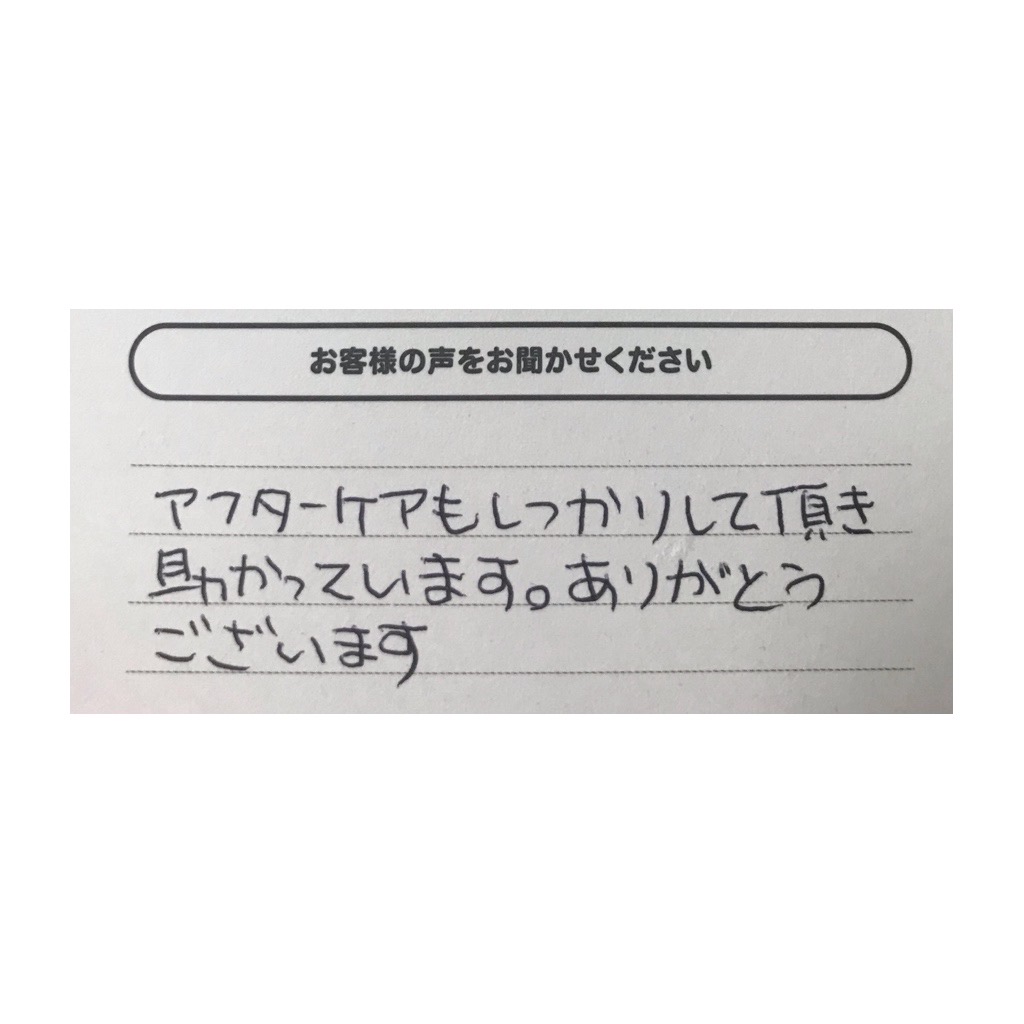 お客様の声をお聞かせください
アフターケアもしっかりして頂き
助かっています。ありがとう
ございます